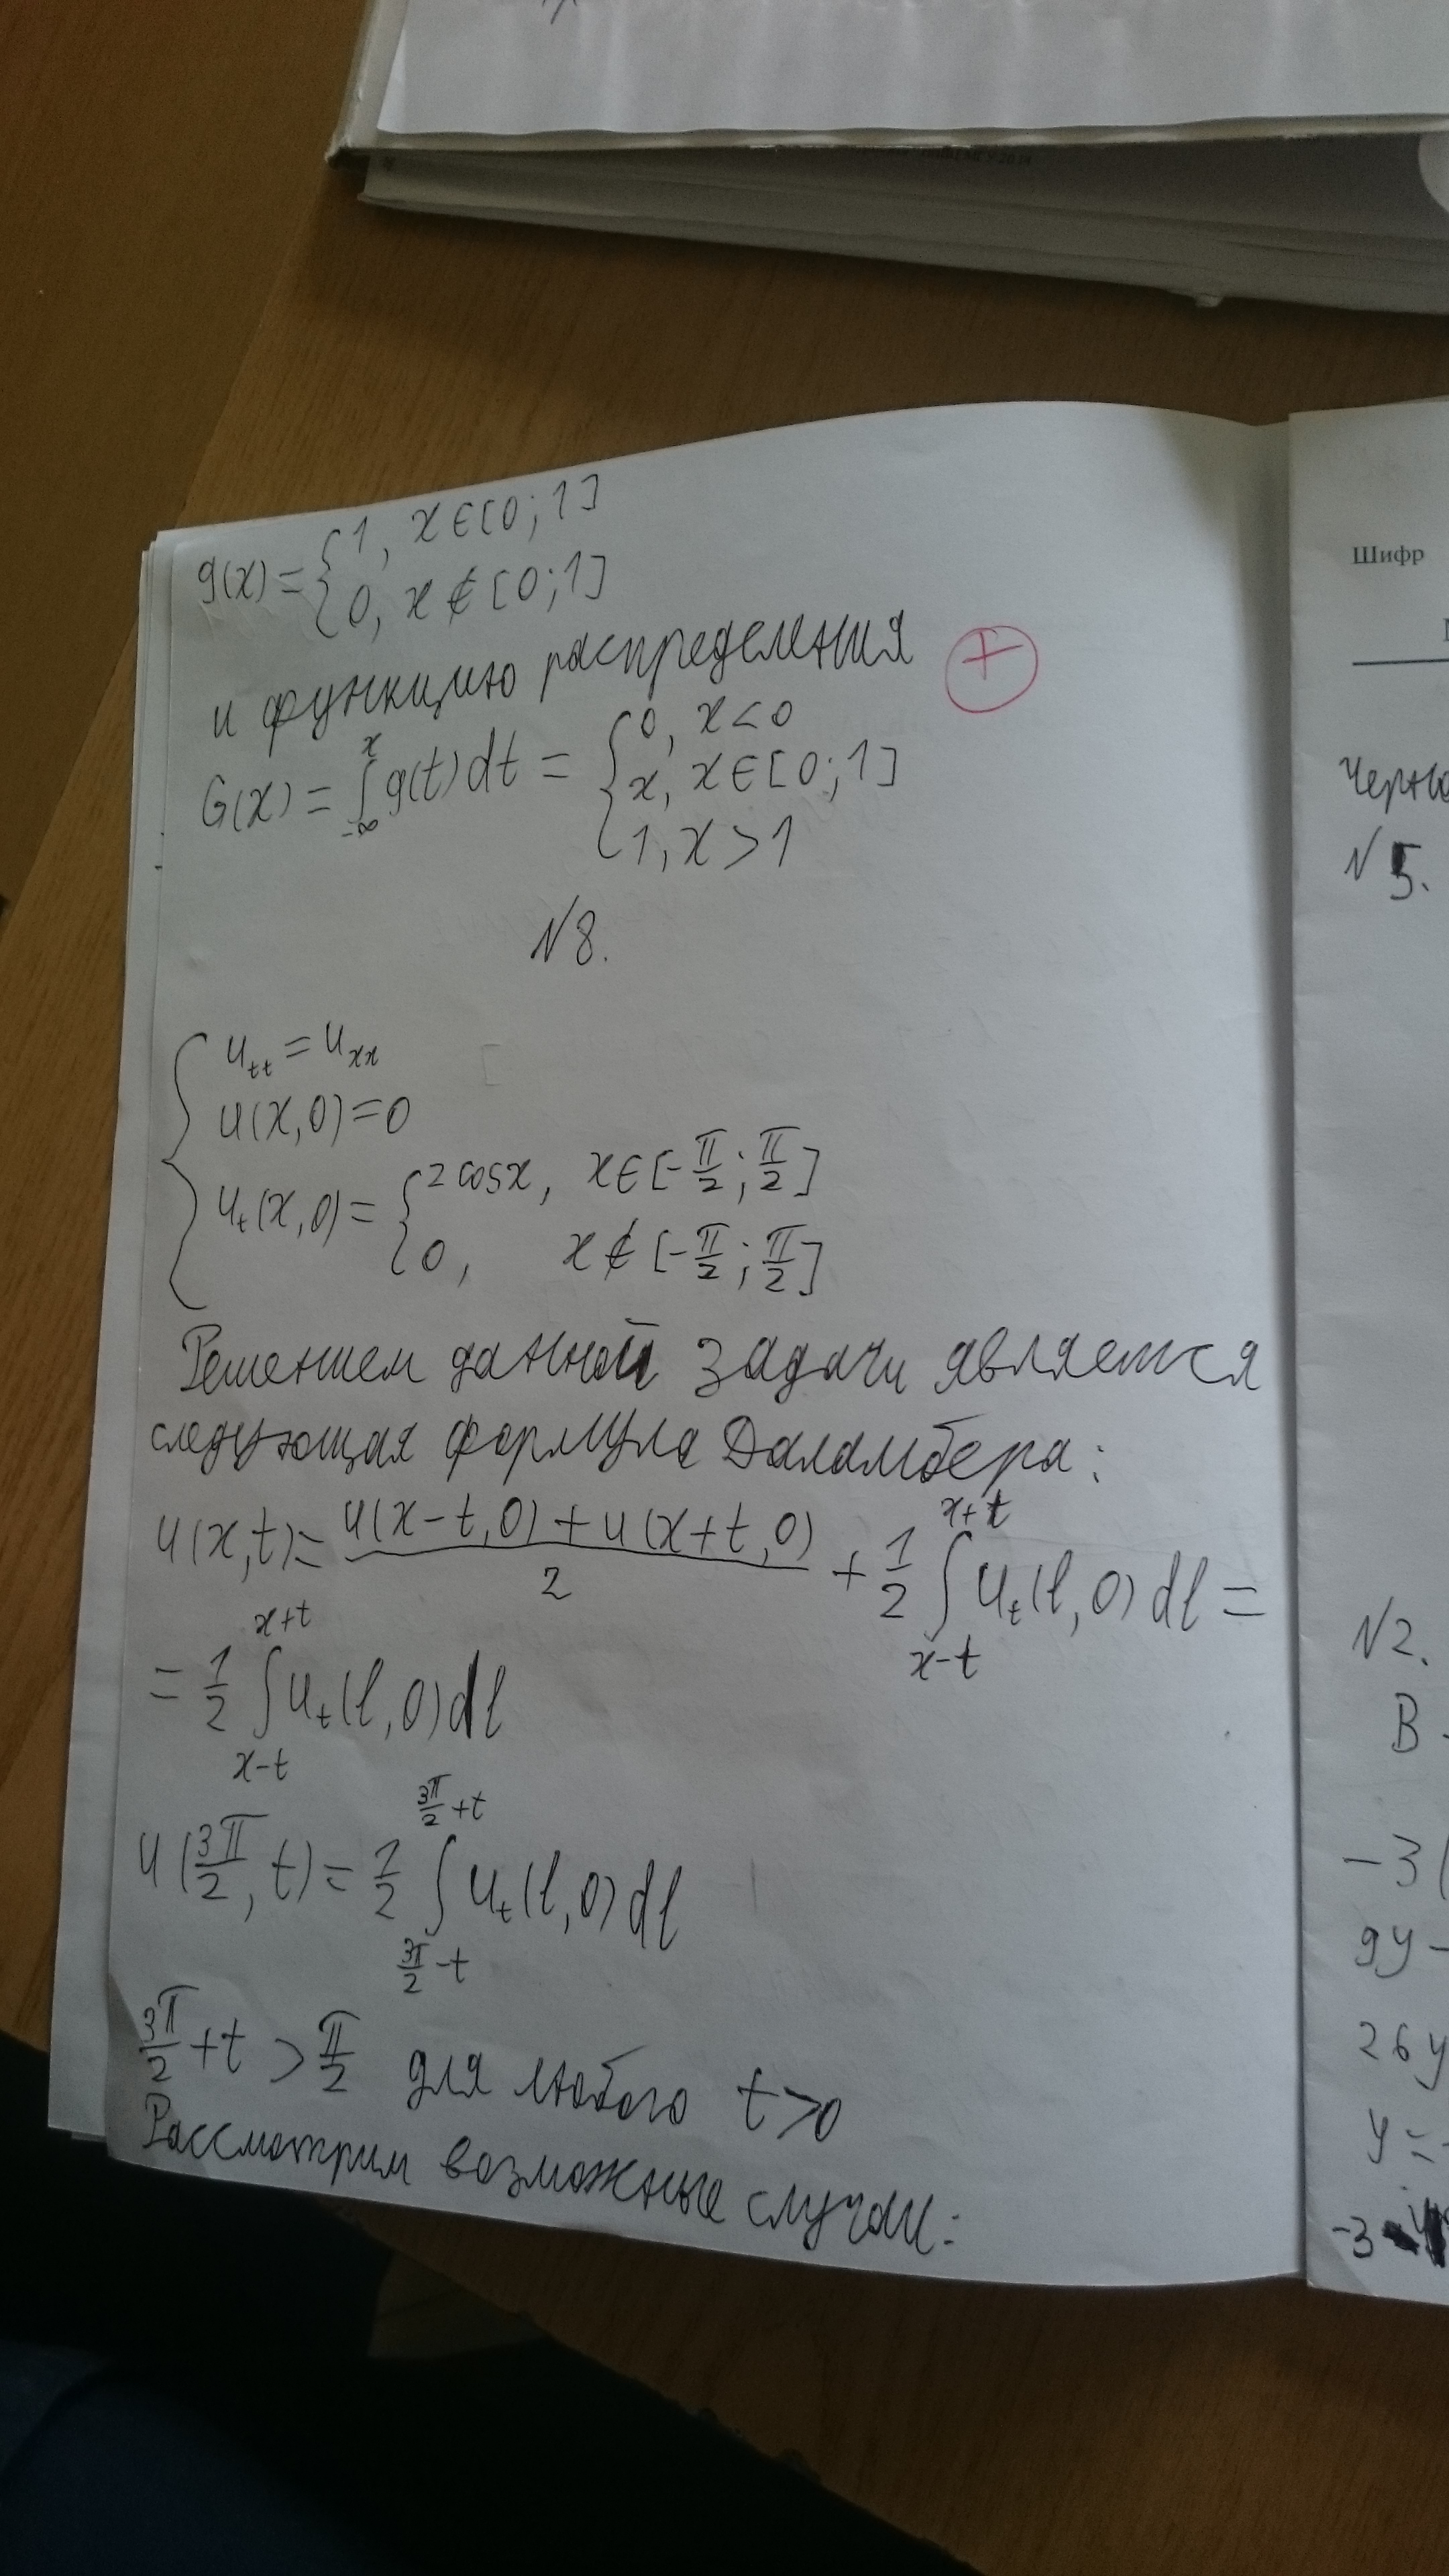 g(x) = { 1, x ∈ [0; 1]
0, x ∉ [0; 1]
и функцию распределения
+
G(x) = ∫_{-∞}^{x} g(t) dt = { 0, x < 0
x, x ∈ [0; 1]
1, x > 1
N 8.
{ u_tt = u_xx
u(x, 0) = 0
u_t(x, 0) = { 2 cos x, x ∈ [-π/2; π/2]
0, x ∉ [-π/2; π/2]
Решением данной задачи является
следующая формула Даламбера:
u(x, t) = (u(x-t, 0) + u(x+t, 0))/2 + 1/2 ∫_{x-t}^{x+t} u_t(l, 0) dl =
= 1/2 ∫_{x-t}^{x+t} u_t(l, 0) dl
u(3π/2, t) = 1/2 ∫_{3π/2 - t}^{3π/2 + t} u_t(l, 0) dl
3π/2 + t > π/2 для любого t > 0
Рассмотрим возможные случаи:
Шифр
N 5.
N 2.
B
-3(
9y -
26y
y =
-3